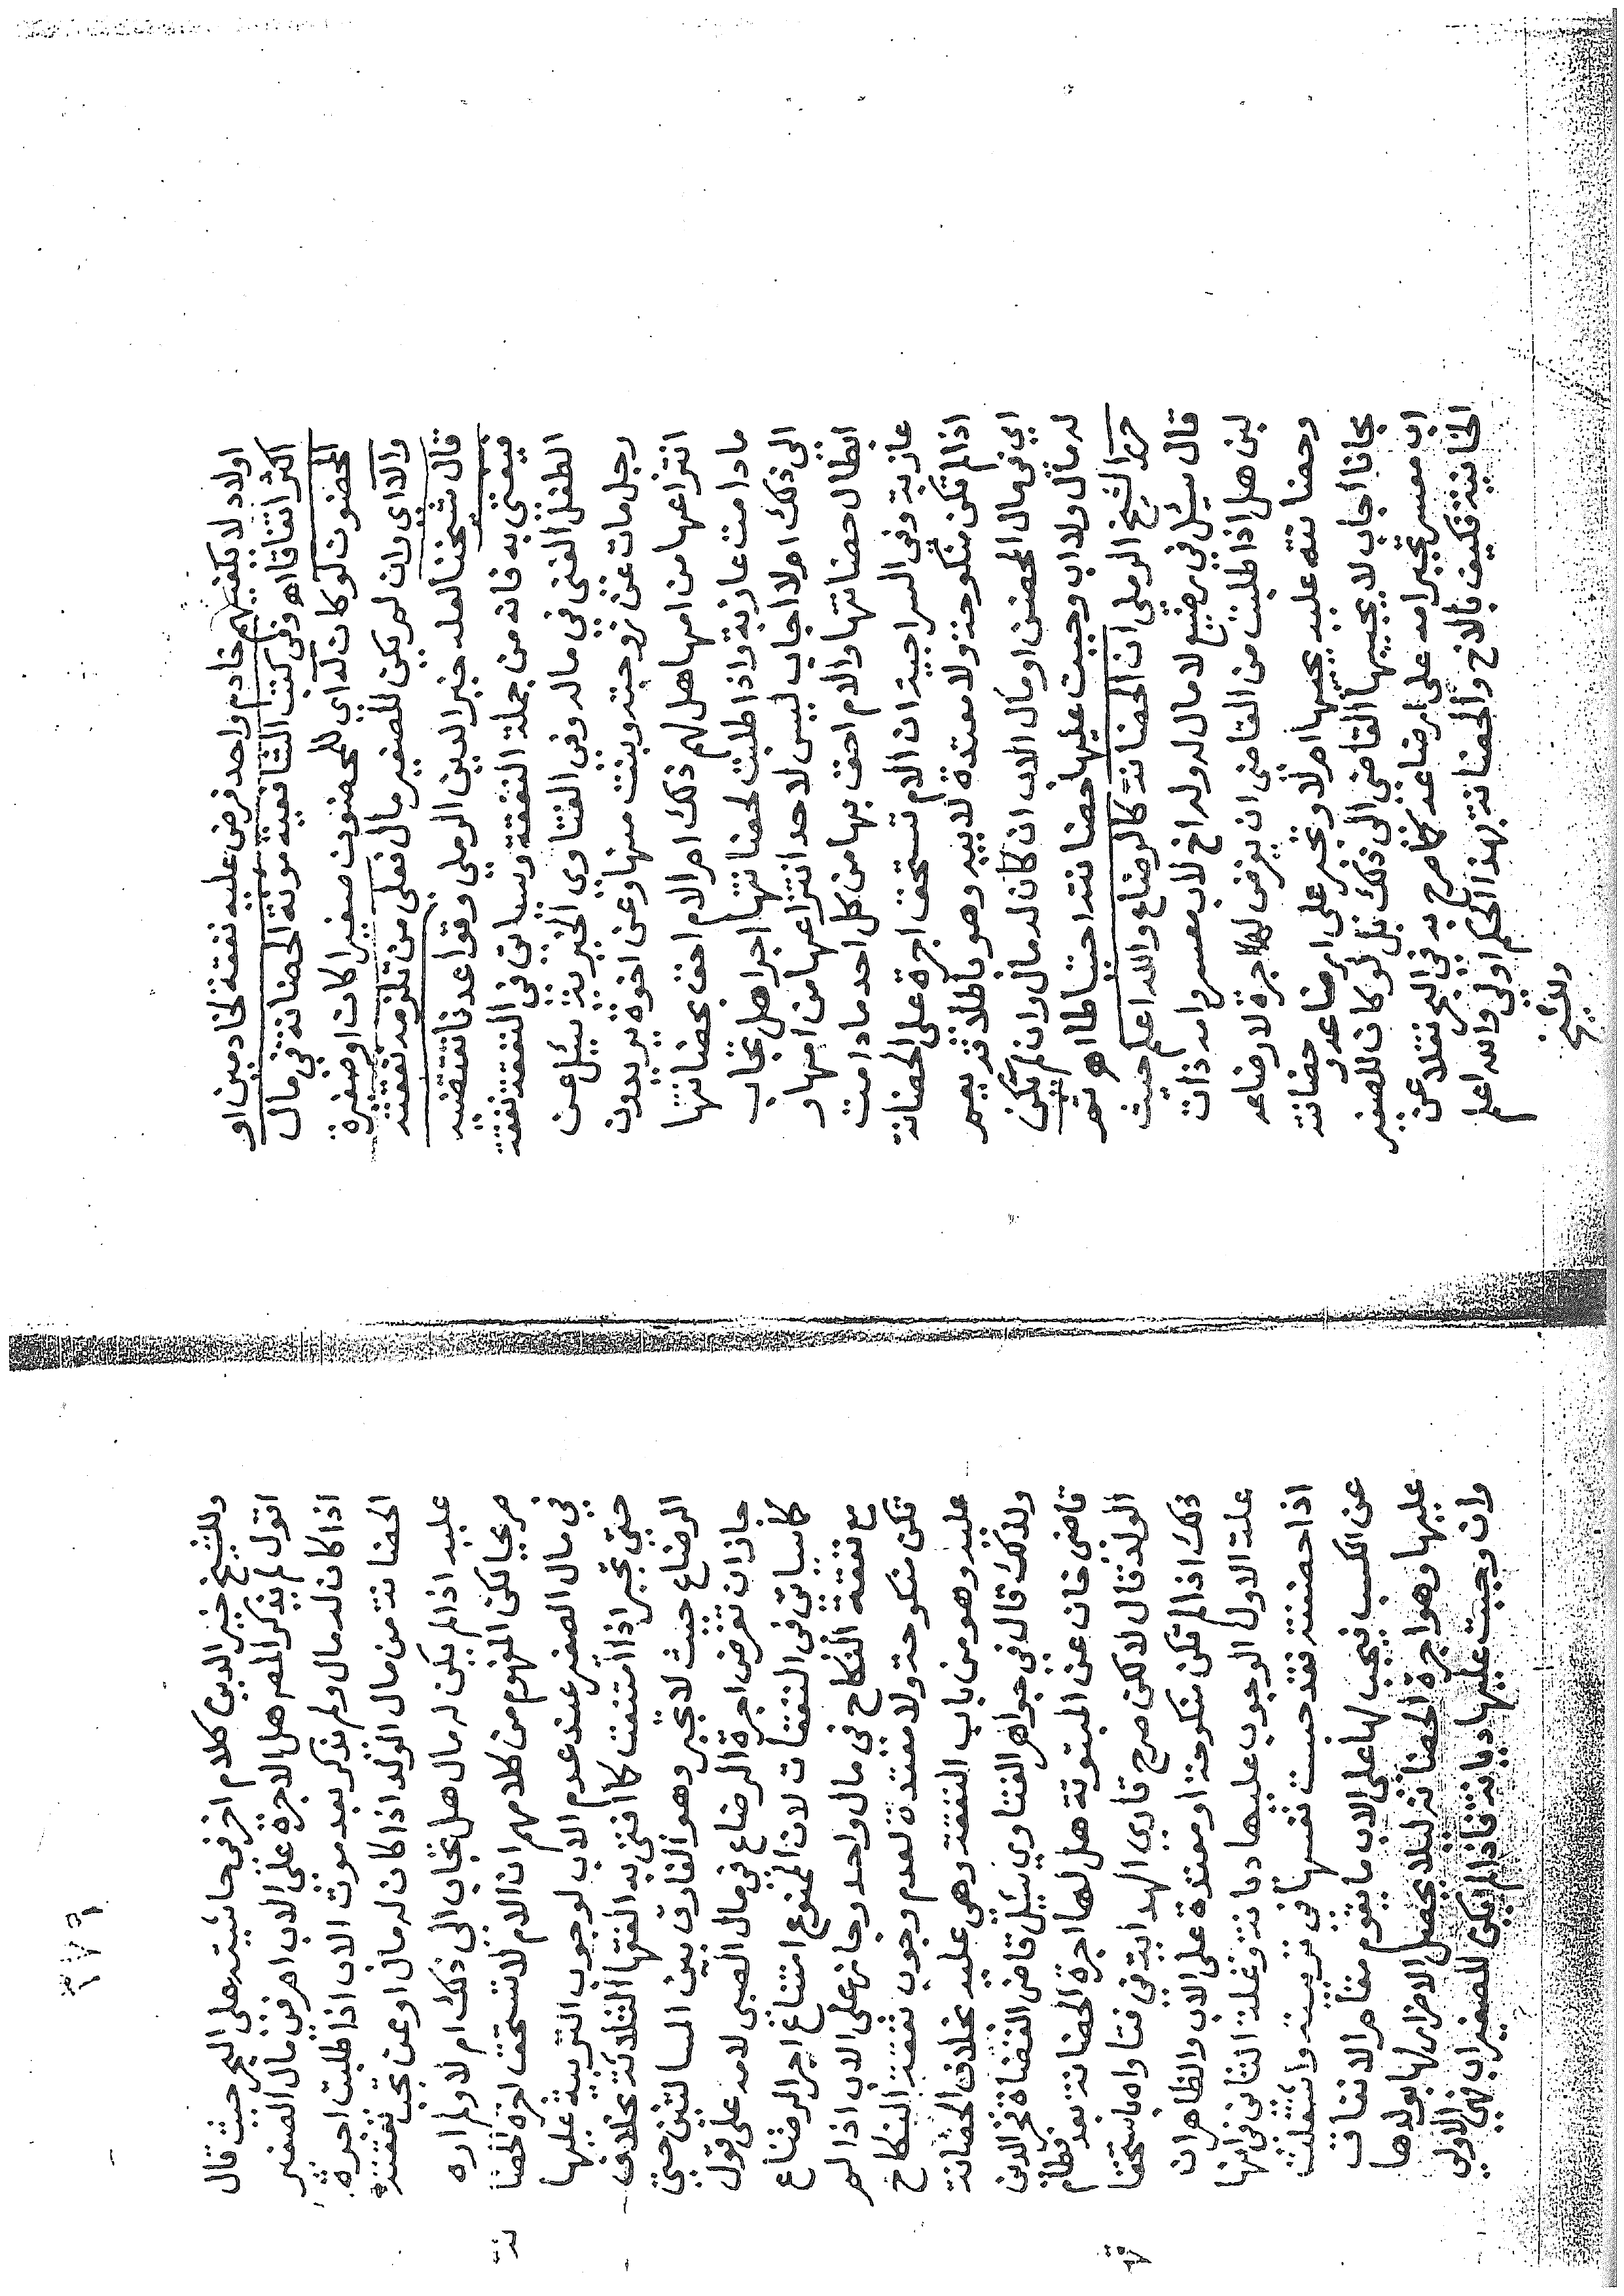 اولاد لا يكفيهم خادم واحد فرض عليه نفقة لخادمين او
اكثر اتفاقا اه وفي كتب الشافعية مونة الحضانة في مال
المحضون لو كان له اي للمحضون صغيرا كان او صغيرة
والا اي وان لم يكن للصغير مال فعلى من تلزمه نفقته
قال شيخنا لعله خير الدين الرملي وقواعدنا تقتضيه
فيفتى به فانه من جملة النفقة وسياتي في النفقة نفقة
الطفل الغني في ماله وفي الفتاوى الخيرية سئل عن
رجل مات عن زوجته وبنت منها وعن اخوة يريدون
انتزاعها من امها هل لهم ذلك ام الام احق بحضانتها
ما دامت عازبة واذا طلبت لحضانتها اجرا هل تجاب
الى ذلك ام لا اجاب ليس لاحد انتزاعها من امها و
ابطال حضانتها والام احق بها من كل احد ما دامت
عازبة وفي السراجية ان الام تستحق اجرة على الحضانة
اذا لم تكن منكوحة ولا معتدة لابيه وهو باطلاقه يعم
اي في مال المحضن او مال الاب ان كان له مال وان لم تكن
له مال ولا اب وجبت عليها حضانته احتياطا اه ثم
حرر الشيخ الرملي ان الحضانة كالرضاع والله اعلم حيث
قال سئل في رضيع لا مال له وله اخ لاب معسر وامه ذات
لبن هل اذا طلبت من القاضي ان يفرض لها اجرة لارضاعه
وحضانته عليه يجيبها ام لا وتجبر على ارضاعه و حضانته
مجانا اجاب لا يجيبها القاضي الى ذلك بل لو كان للصغير
اب معسر تجبر امه على ارضاعه كما صرح به في البحر نقلا عن
الخانية فكيف بالاخ والحضانة بهذا الحكم اولى والله اعلم
وللشيخ
١٧٦
وللشيخ خير الدين كلام اخر في حاشيته على البحر حيث قال
اقول لم يذكر المص هل الاجرة على الاب ام في مال الصغير
اذا كان له مال ولم يذكر بعد موت الاب اذا طلبت اجرة
الحضانة من مال الولد اذا كان له مال او عن تجب نفقته
عليه اذا لم يكن له مال هل تجاب الى ذلك ام لا ولم اره
صريحا لكن المفهوم من كلامهم ان الام لا تستحق اجرة الحضا
نة
في مال الصغير عند عدم الاب لوجوب التربية عليها
حتى تجبر اذا امتنعت كما افتى به الفقها الثلاثة بخلاف
الرضاع حيث لا تجبر وهو الفارق بين المسالتين حتى
جاز ان تفرض اجرة الرضاع في مال الصبي لامه على قول
كما سياتي في النفقات لان الممنوع امتناع اجر الرضاع
مع نفقة النكاح في مال واحد وجاز على الاب اذا لم
تكن منكوحة ولا معتدة لعدم وجوب نفقة النكاح
عليه وهو من باب النفقة وهي عليه بخلاف الحضانة
ولذلك قال في جواهر الفتاوي سئل قاضي القضاة فخر الدين
قاضي خان عن المبتوتة هل لها اجرة الحضانة بعد فطام
الولد قال لا لكن صرح قاري الهداية في فتاواه باستحقا
قها
ذلك اذا لم تكن منكوحة او معتدة على الاب والظاهر ان
علة الاول الوجوب عليها ديانة وعلة الثاني في انها
اذا حضنته فقد حبست نفسها في تربيته واشتغلت
عن الكسب فيجب لها على الاب ما يقوم مقام الانفاق
عليها وهو اجرة الحضانة ليلا يحصل الاضرار لها بولدها
وان وجبت عليها ديانة فاذا لم يكن للصغير اب فهي الاولى